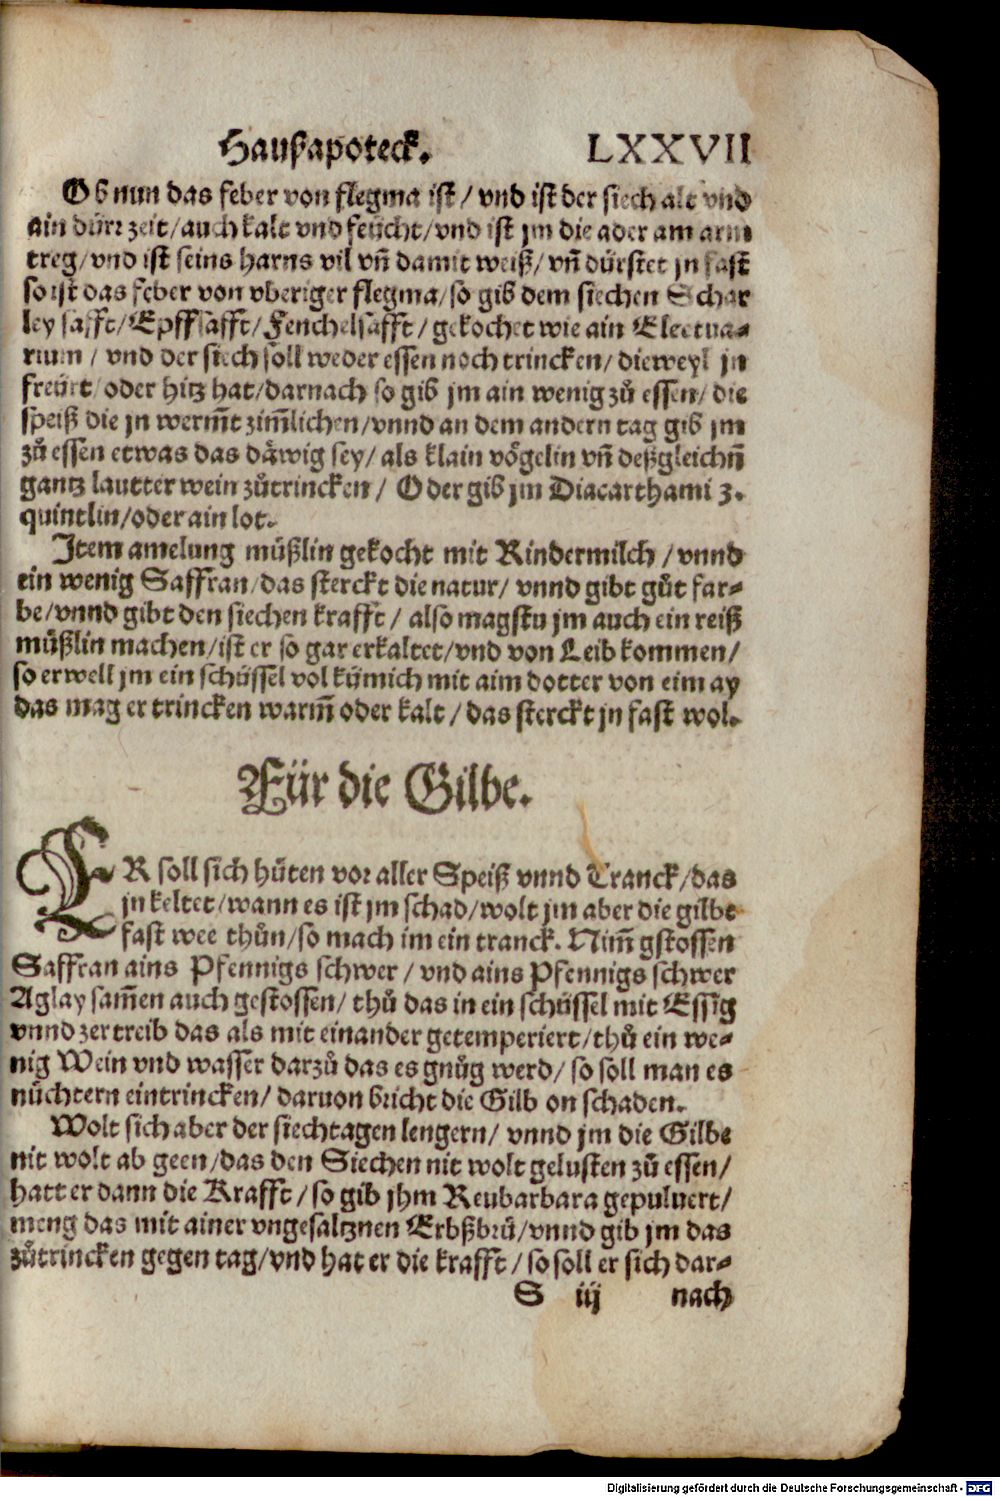 Haußapoteck. LXXVII
Ob nun das feber von flegma ist / vnd ist der siech alt vnd
ain dürr zeit / auch kalt vnd feücht / vnd ist jm die ader am arm
treg / vnd ist seins harns vil vñ damit weiß / vñ dürstet jn fast
so ist das feber von vberiger flegma / so gib dem siechen Schar
ley safft / Epffsafft / Fenchelsafft / gekochet wie ain Electua-
rium / vnd der siech soll weder essen noch trincken / dieweyl jn
freürt / oder hitz hat / darnach so gib jm ain wenig zů essen / die
speiß die jn wermt̄ zim̄lichen / vnnd an dem andern tag gib jm
zů essen etwas das däwig sey / als klain vögelin vñ deßgleichñ
gantz lautter wein zůtrincken / Oder gib jm Diacarthami 3.
quintlin / oder ain lot.
Item amelung müßlin gekocht mit Rindermilch / vnnd
ein wenig Saffran / das sterckt die natur / vnnd gibt gůt far-
be / vnnd gibt den siechen krafft / also magstu jm auch ein reiß
müßlin machen / ist er so gar erkaltet / vnd von Leib kommen /
so erwell jm ein schüssel vol kümich mit aim dotter von eim ay
das mag er trincken warm̄ oder kalt / das sterckt jn fast wol.
Für die Gilbe.
ER soll sich hüten vor aller Speiß vnnd Tranck / das
jn keltet / wann es ist jm schad / wolt jm aber die gilbe
fast wee thůn / so mach im ein tranck. Nim̄ gstossen
Saffran ains Pfennigs schwer / vnd ains Pfennigs schwer
Aglay sam̄en auch gestossen / thů das in ein schüssel mit Essig
vnnd zertreib das als mit einander getemperiert / thů ein we-
nig Wein vnd wasser darzů das es gnůg werd / so soll man es
nüchtern eintrincken / daruon bricht die Gilb on schaden.
Wolt sich aber der siechtagen lengern / vnnd jm die Gilbe
nit wolt ab geen / das den Siechen nit wolt gelusten zů essen /
hatt er dann die Krafft / so gib jhm Reubarbara gepuluert /
meng das mit ainer vngesaltznen Erbßbrü / vnnd gib jm das
zůtrincken gegen tag / vnd hat er die krafft / so soll er sich dar-
S iij nach
Digitalisierung gefördert durch die Deutsche Forschungsgemeinschaft - DFG